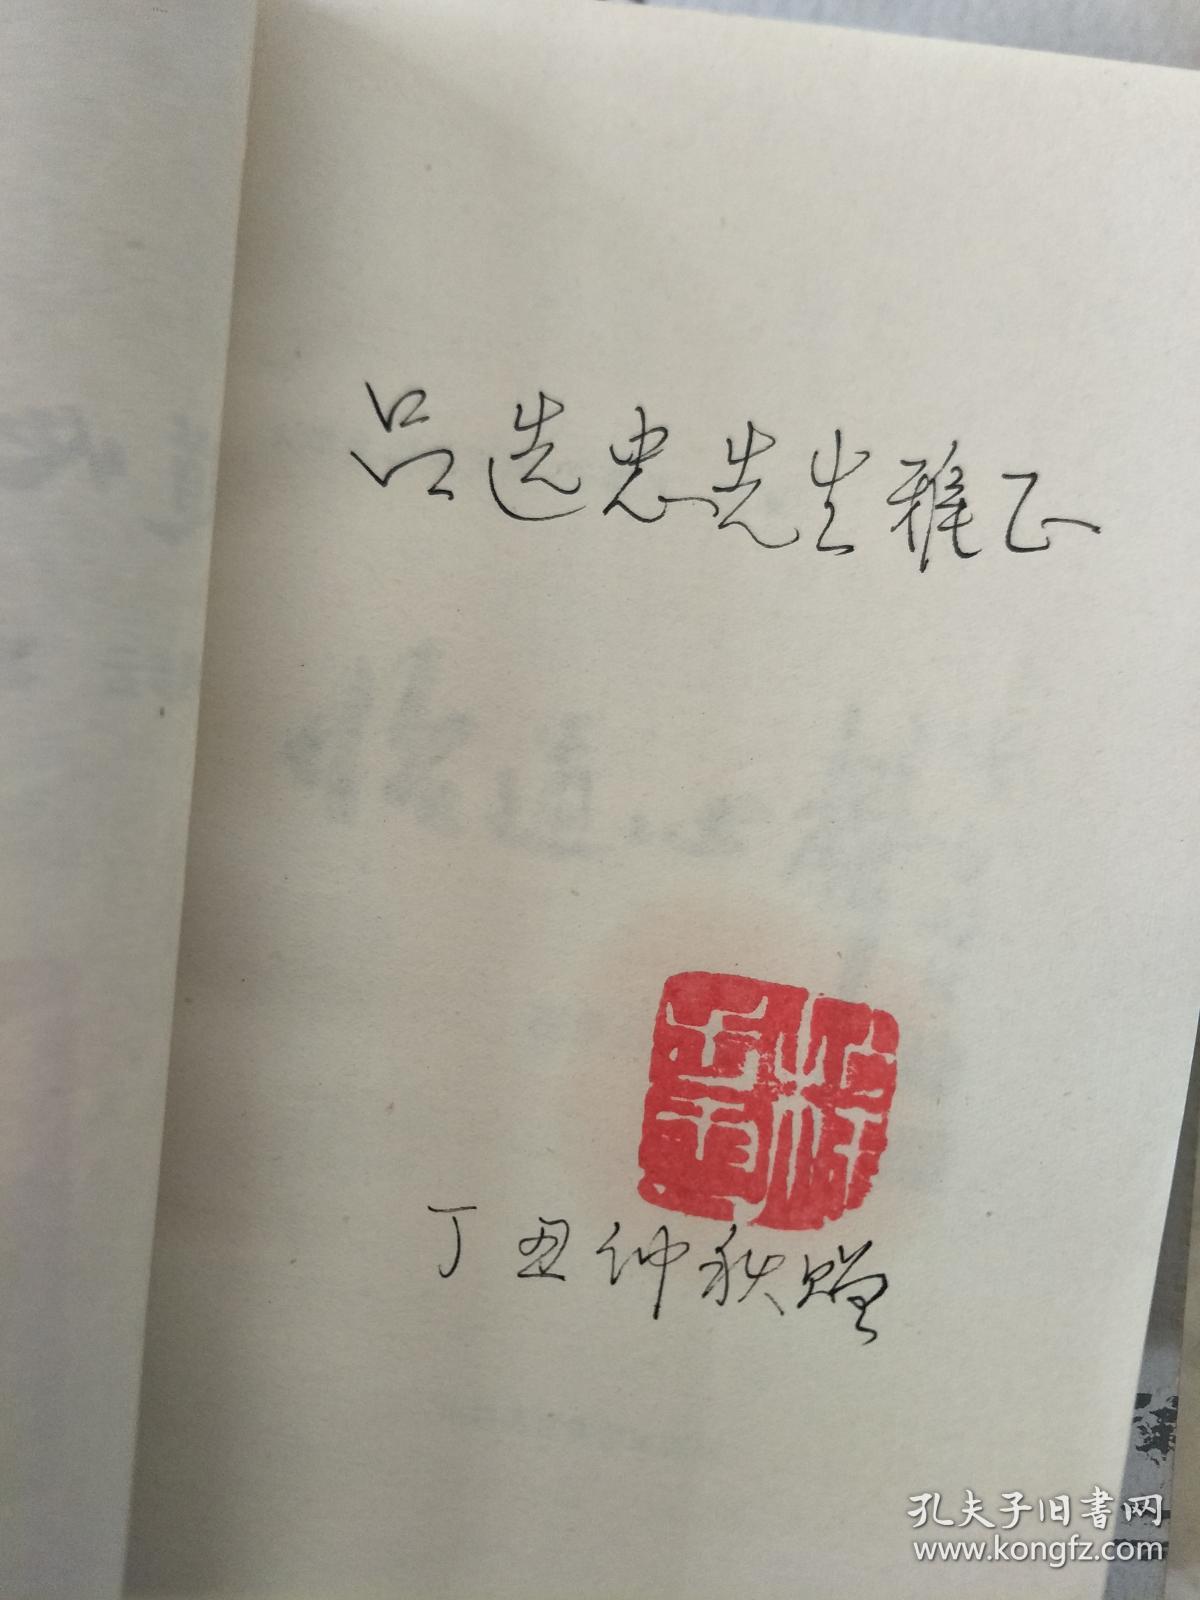 吕选忠先生雅正
丁丑仲秋赠
孔夫子旧书网
www.kongfz.com